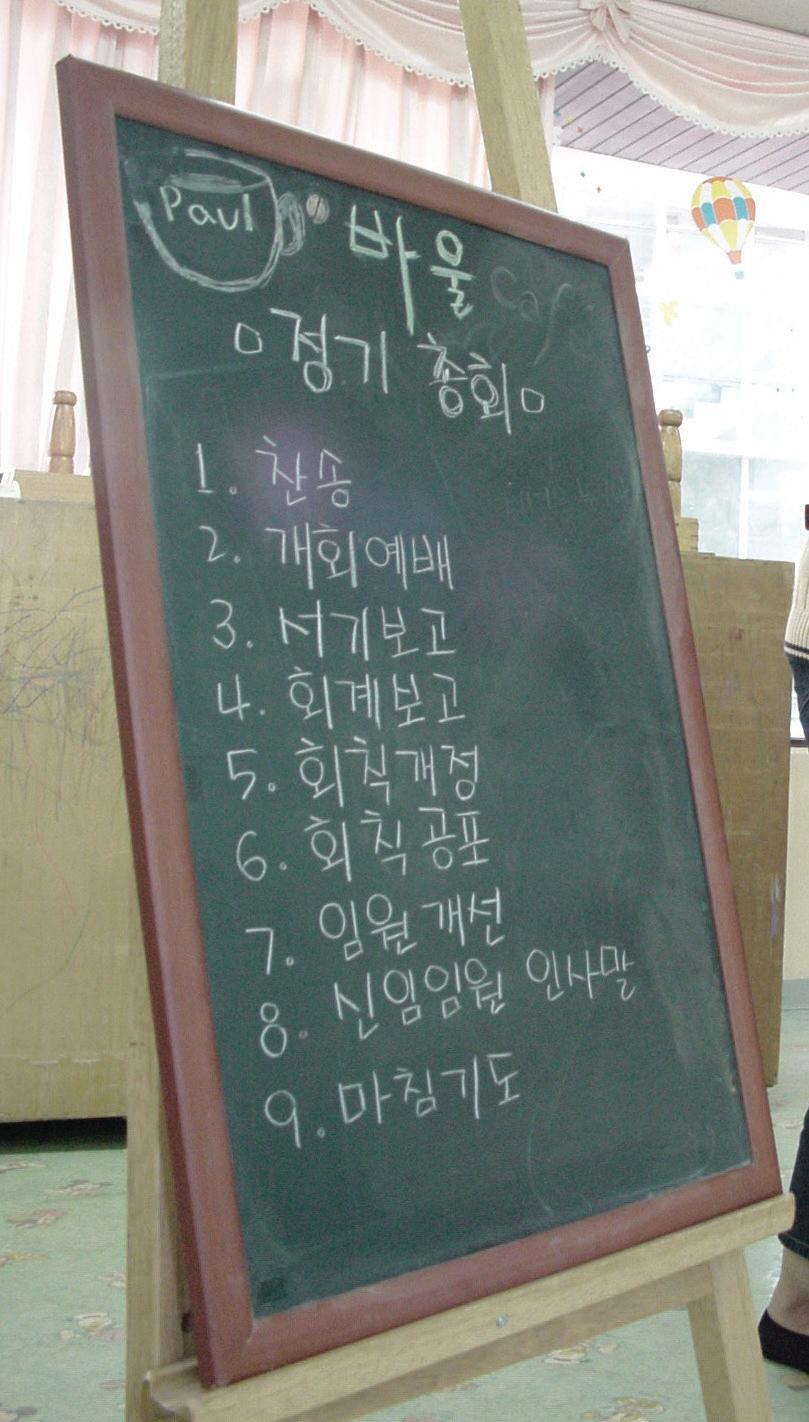 Paul 바울 Cafe
ㅇ정기 총회ㅇ
1. 찬송
2. 개회예배
3. 서기보고
4. 회계보고
5. 회칙개정
6. 회칙공포
7. 임원개선
8. 신임임원 인사말
9. 마침기도